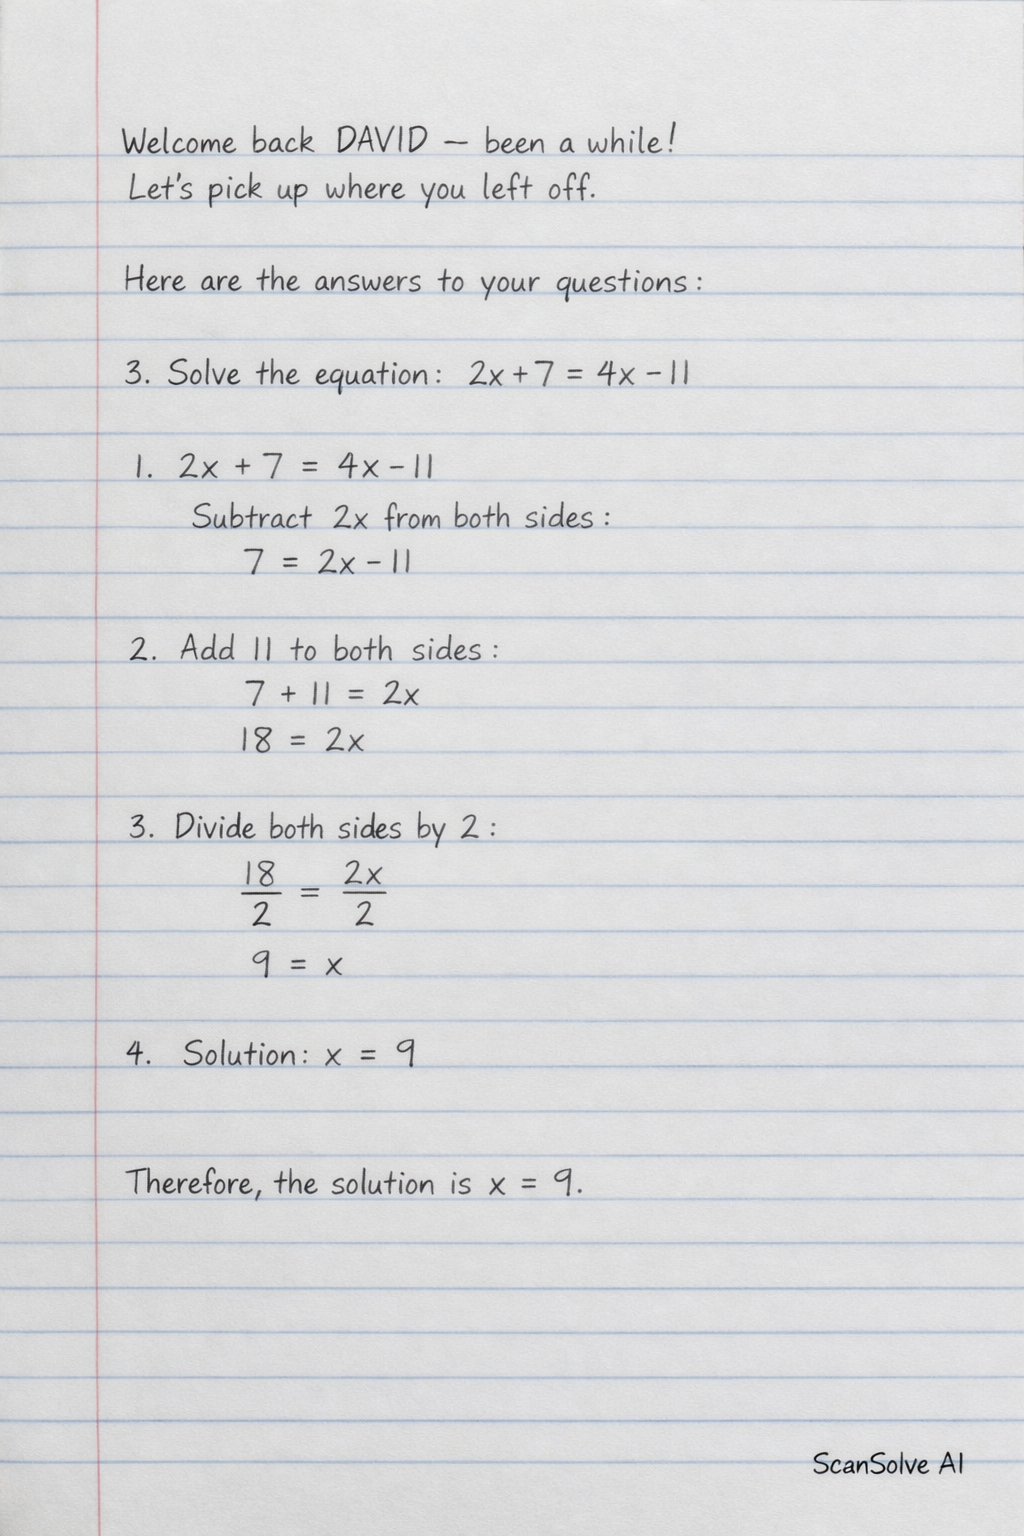 Welcome back DAVID – been a while!
Let's pick up where you left off.
Here are the answers to your questions:
3. Solve the equation: 2x + 7 = 4x - 11
1. 2x + 7 = 4x - 11
Subtract 2x from both sides:
7 = 2x - 11
2. Add 11 to both sides:
7 + 11 = 2x
18 = 2x
3. Divide both sides by 2:
18/2 = 2x/2
9 = x
4. Solution: x = 9
Therefore, the solution is x = 9.
ScanSolve AI